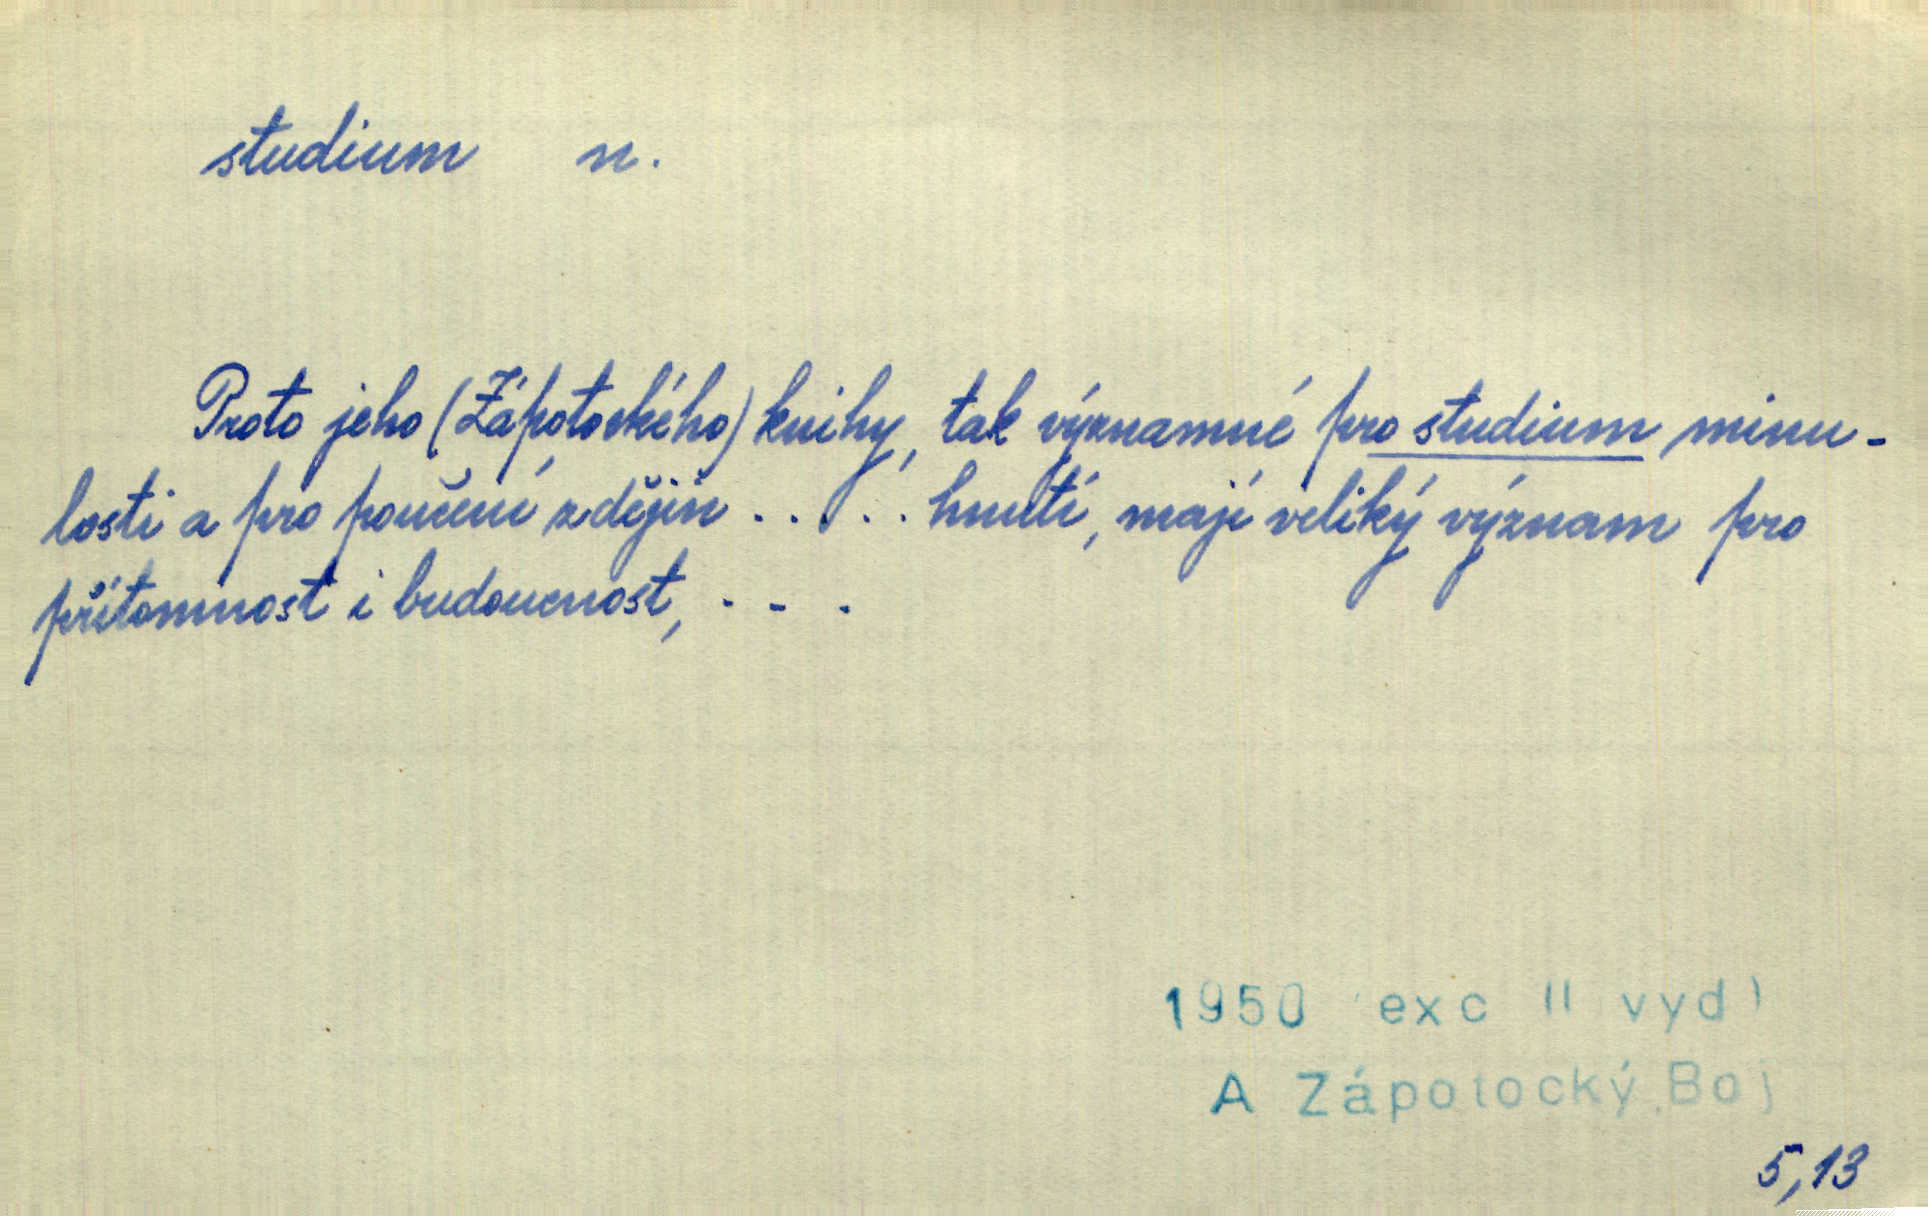 studium n.
Proto jeho (Zápotockého) knihy, tak významné pro studium minu-
losti a pro poučení z dějin . . . . . hnutí, mají veliký význam pro
přítomnost i budoucnost, . . .
1950 exc II vyd
A Zápotocký Boj
5,13